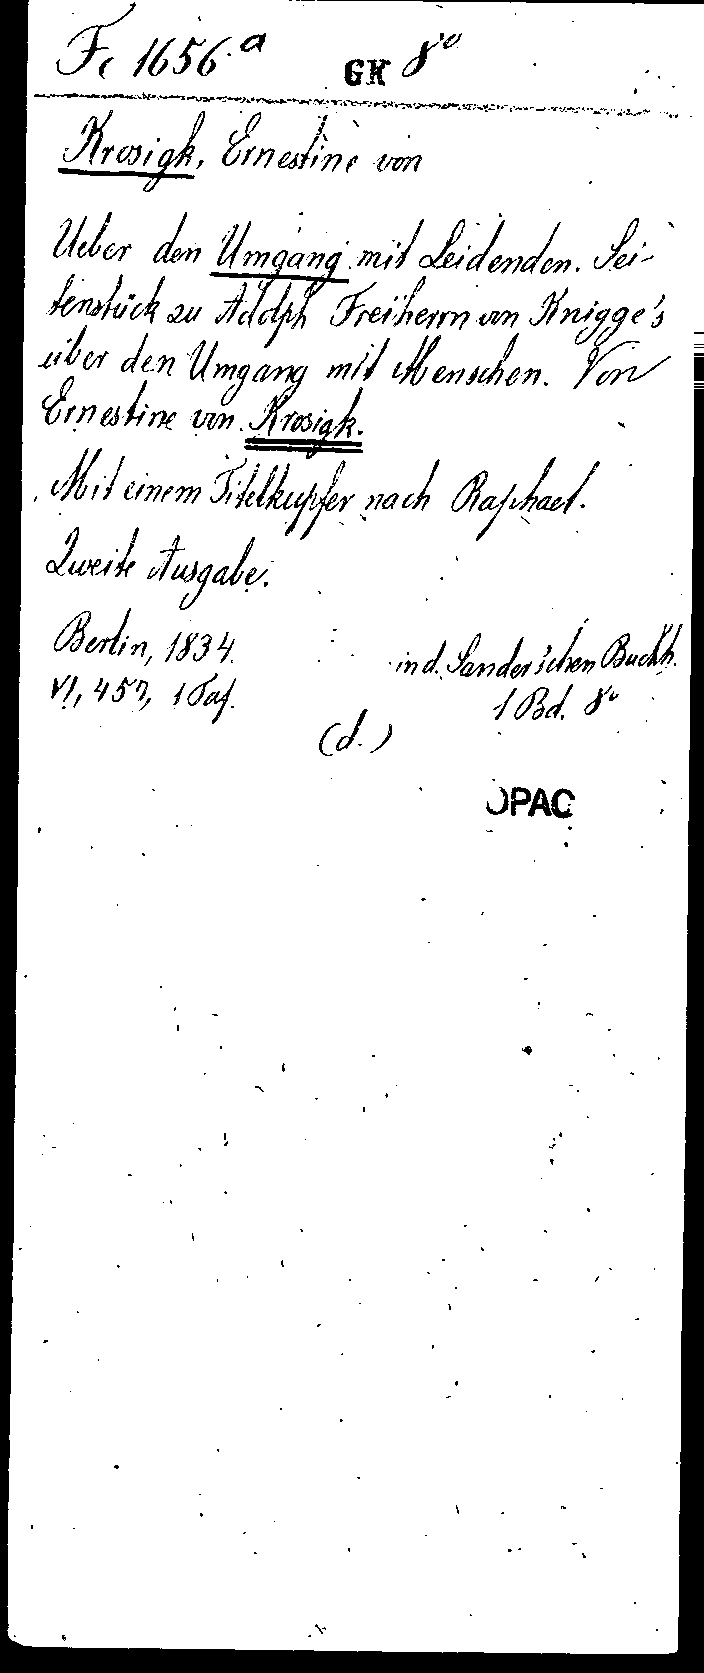 Fc 1656.a GK 8°
Krosigk, Ernestine von
Ueber den Umgang mit Leidenden. Sei-
tenstück zu Adolph Freiherrn von Knigge's
über den Umgang mit Menschen. Von
Ernestine von Krosigk.
Mit einem Titelkupfer nach Raphael.
Zweite Ausgabe.
Berlin, 1834. in d. Sander'schen Buchh.
VI, 457, 1 Taf. 1 Bd. 8°
(d.)
OPAC